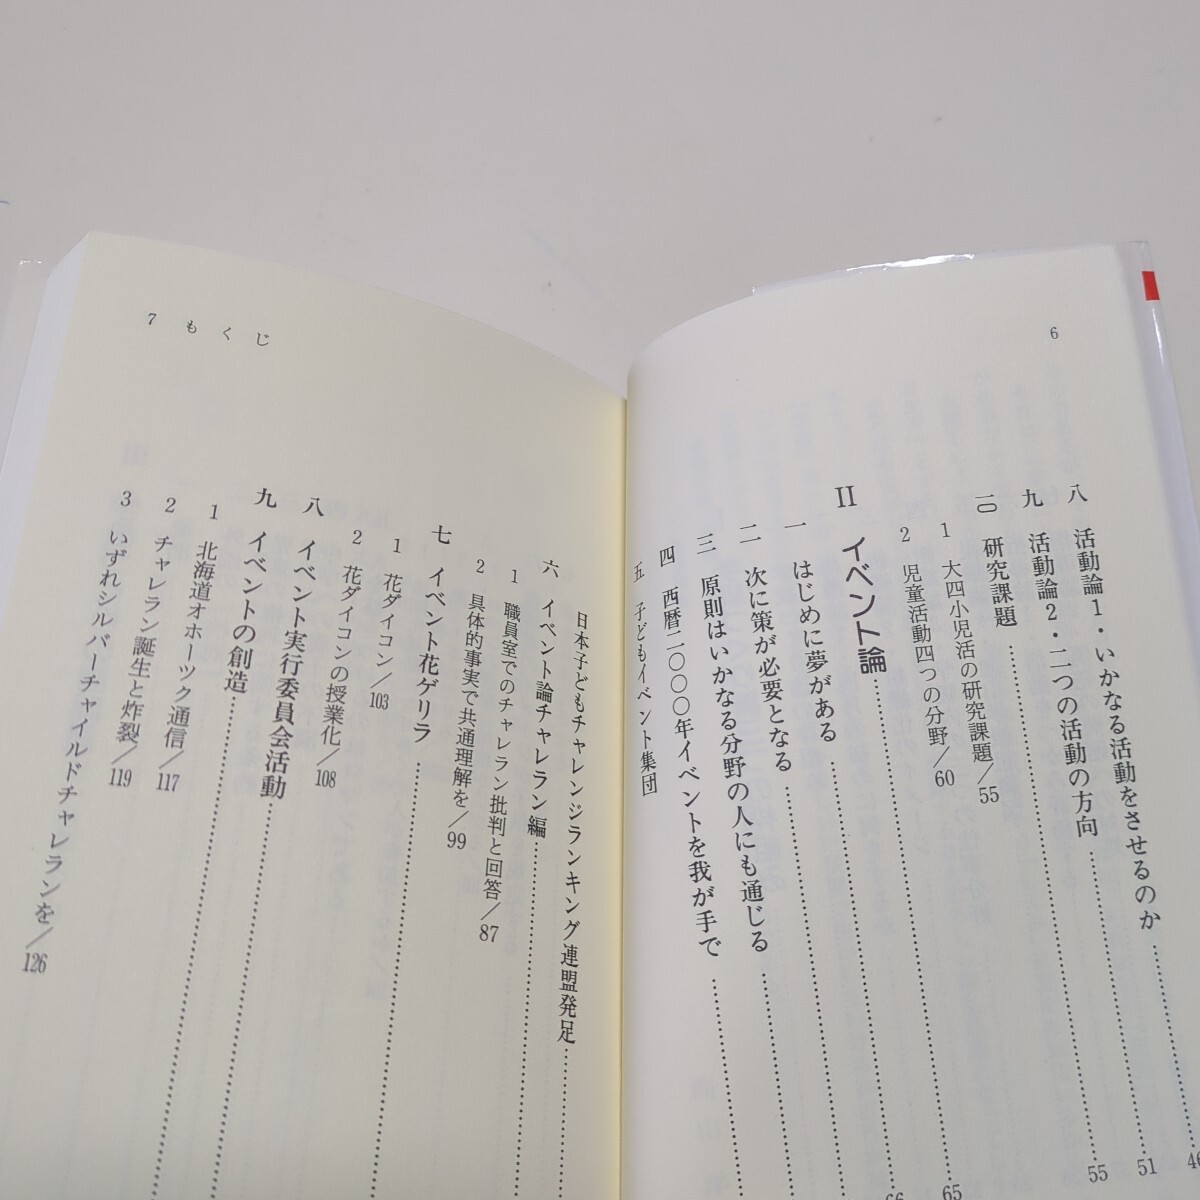 6
八 活動論1・いかなる活動をさせるのか……46
九 活動論2・二つの活動の方向……51
一〇 研究課題……55
1 大四小児活の研究課題/55
2 児童活動四つの分野/60
II イベント論……65
一 はじめに夢がある……66
二 次に策が必要となる……
三 原則はいかなる分野の人にも通じる……
四 西暦二〇〇〇年イベントを我が手で……
五 子どもイベント集団
7 もくじ
日本子どもチャレンジランキング連盟発足……
六 イベント論チャレラン編……
1 職員室でのチャレラン批判と回答/87
2 具体的事実で共通理解を/99
七 イベント花ゲリラ……
1 花ダイコン/103
2 花ダイコンの授業化/108
八 イベント実行委員会活動……
九 イベントの創造……
1 北海道オホーツク通信/117
2 チャレラン誕生と炸裂/119
3 いずれシルバーチャイルドチャレランを/126